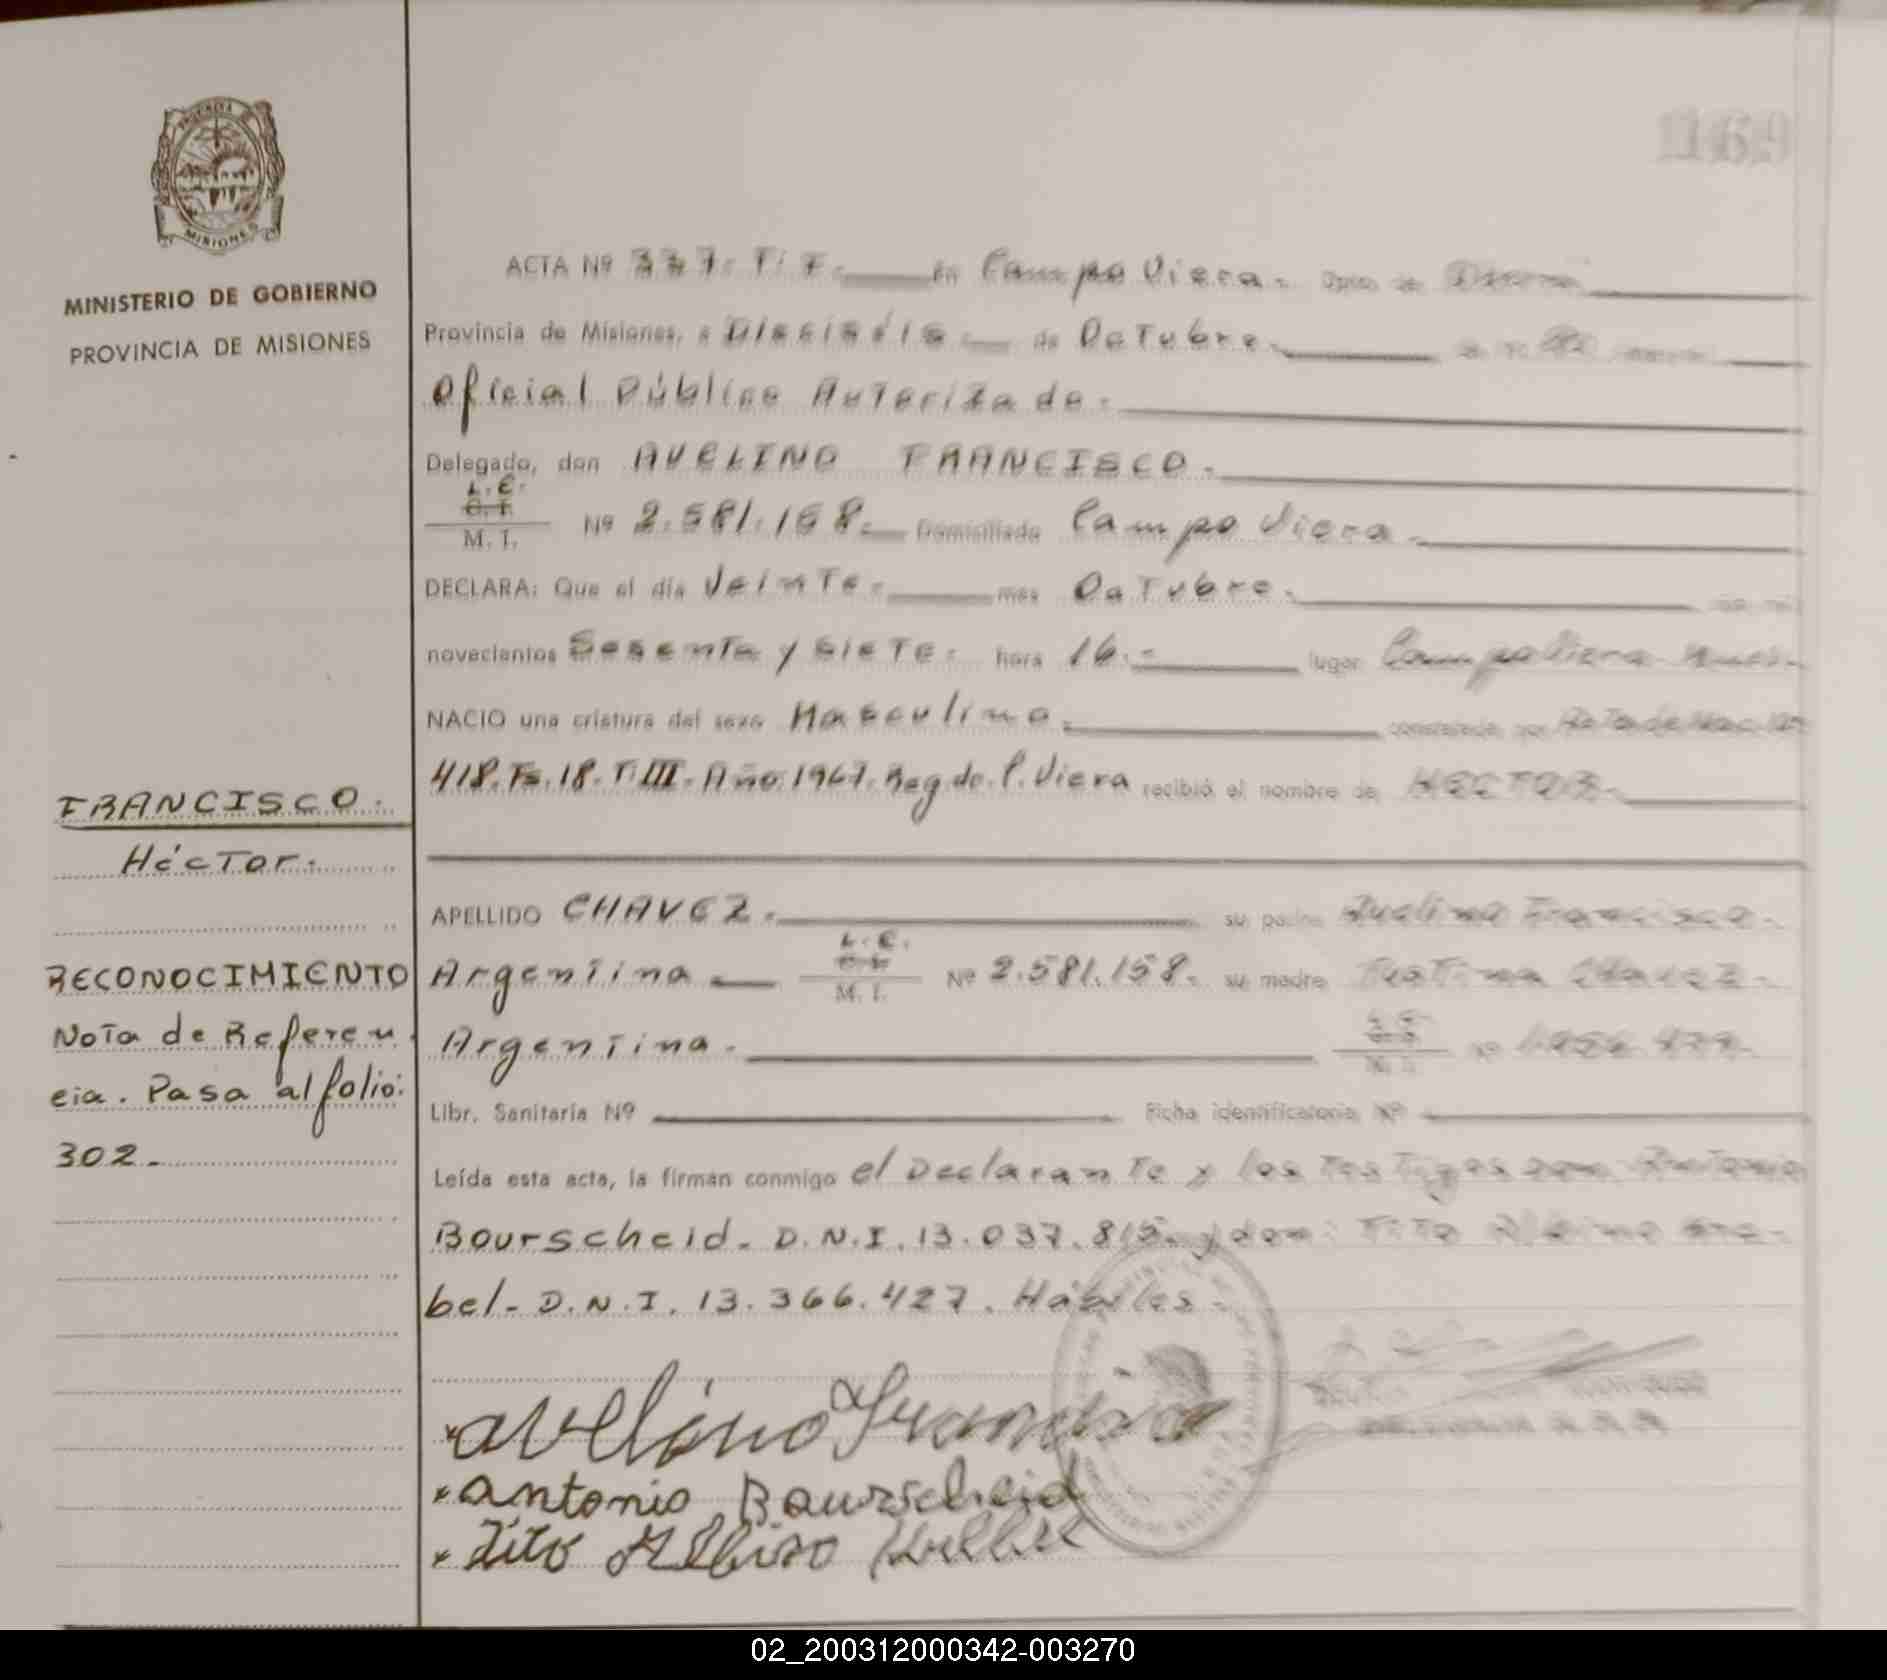 169
PROVINCIA DE
MISIONES
MINISTERIO DE GOBIERNO
PROVINCIA DE MISIONES
ACTA Nº 337. T: I. en Campo Viera. Dpto. de
Provincia de Misiones, a Dieciséis de Octubre.
Oficial Público Autorizado.
Delegado, don AVELINO FRANCISCO.
L.E.
C.I.
M. I. Nº 2.581.158. Domiciliado Campo Viera.
DECLARA: Que el día Veinte. mes Octubre. de mil
novecientos Sesenta y siete. hora 16.- lugar Campo Viera
NACIO una criatura del sexo Masculino. constatado por Acta de Nac.
418. Fs. 18. T. III. Año. 1967. Reg. de. C. Viera recibió el nombre de HECTOR.
FRANCISCO.
Héctor.
APELLIDO CHAVEZ. su padre Avelino Francisco.
RECONOCIMIENTO
Argentina L.E. M. I. Nº 2.581.158. su madre CHAVEZ
Nota de Referen
Argentina. M. I. Nº
cia. Pasa al folio:
Libr. Sanitaria Nº Ficha identificatoria Nº
302.
Leída esta acta, la firman conmigo el Declarante y los testigos don Antonio
Bourscheid. D.N.I. 13.037.815. y don: Tito
bel. D.N.I. 13.366.427. Hábiles.
avelino Francisco
antonio Bourscheid
Tito
02_200312000342-003270